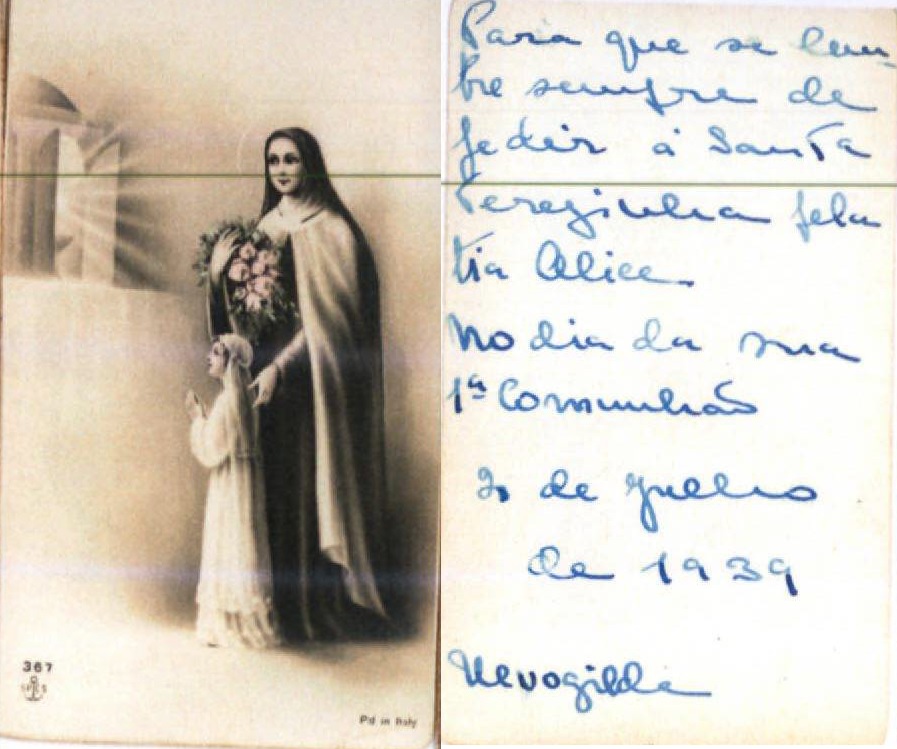 367
Pd in Italy
Para que se lem-
bre sempre de
pedir à Santa
Terezinha pela
tia Alice
No dia da sua
1ª Comunhão
de Julho
de 1939
Nevogilde